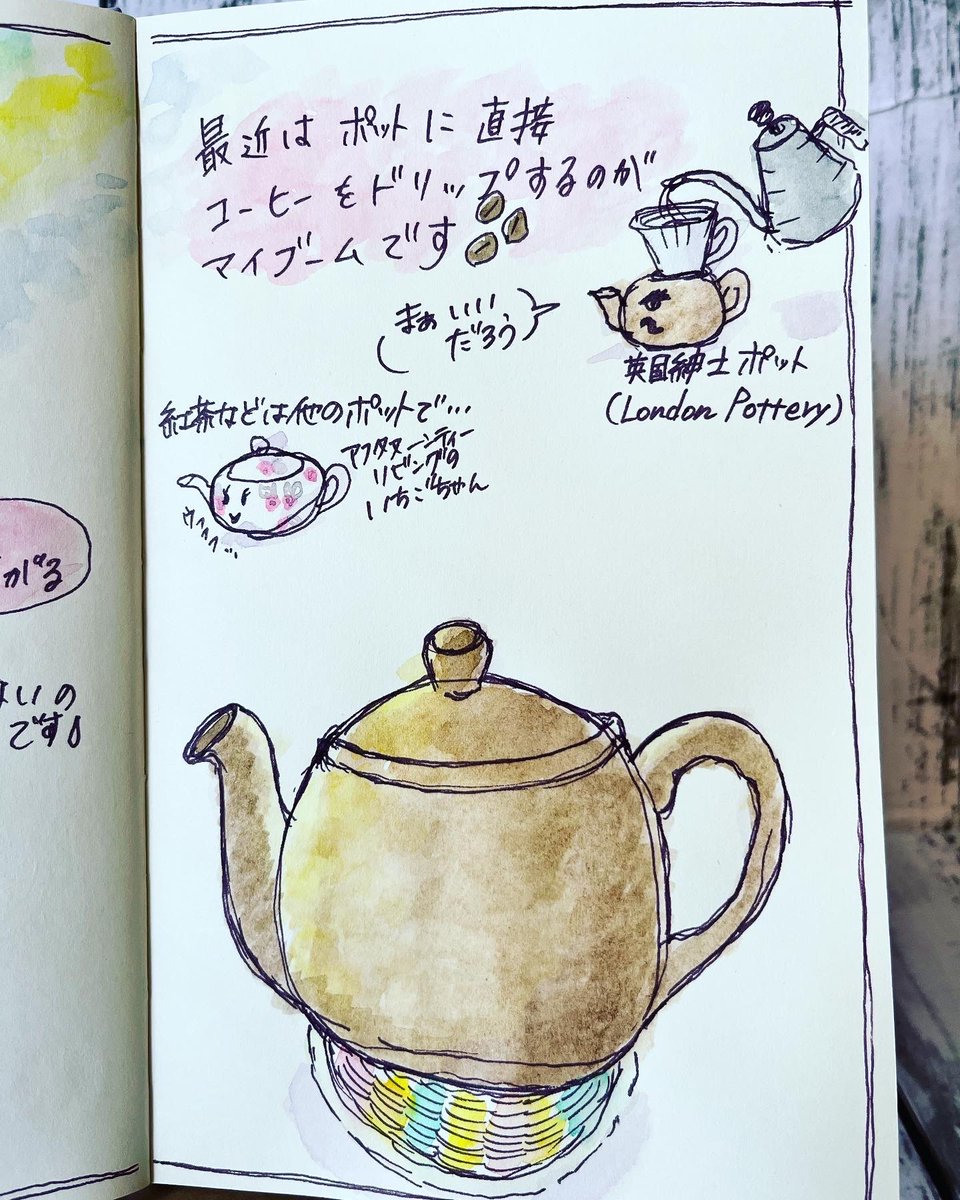 最近は ポットに 直接
コーヒーをドリップするのが
マイブームです
まぁ いい
だろう
英国紳士ポット
(London Pottery)
紅茶などは他のポットで…
アフタヌーンティー
リビングの
いちごちゃん
ウフフフ…
がる
いの
です♪